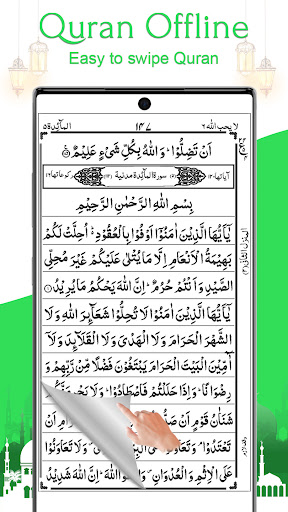 Quran Offline
Easy to swipe Quran
لا يحب الله ٦ ١٤٧ المآئدة ٥
اَنْ تَضِلُّوْا ؕ وَاللّٰهُ بِكُلِّ شَیْءٍ عَلِیْمٌ
اٰیاتها ١٢٠ (٥) سورة المآئدة مدنیة (١١٢) ركوعاتها ١٦
بِسْمِ اللّٰهِ الرَّحْمٰنِ الرَّحِیْمِ
یٰۤاَیُّهَا الَّذِیْنَ اٰمَنُوْۤا اَوْفُوْا بِالْعُقُوْدِ ؕ اُحِلَّتْ لَكُمْ
بَهِیْمَةُ الْاَنْعَامِ اِلَّا مَا یُتْلٰی عَلَیْكُمْ غَیْرَ مُحِلِّی
الصَّیْدِ وَاَنْتُمْ حُرُمٌ ؕ اِنَّ اللّٰهَ یَحْكُمُ مَا یُرِیْدُ
یٰۤاَیُّهَا الَّذِیْنَ اٰمَنُوْا لَا تُحِلُّوْا شَعَآئِرَ اللّٰهِ وَلَا
الشَّهْرَ الْحَرَامَ وَلَا الْهَدْیَ وَلَا الْقَلَآئِدَ وَلَاۤ
آٰمِّیْنَ الْبَیْتَ الْحَرَامَ یَبْتَغُوْنَ فَضْلًا مِّنْ رَّبِّهِمْ وَ
رِضْوَانًا ؕ وَاِذَا حَلَلْتُمْ فَاصْطَادُوْا ؕ وَلَا یَجْرِمَنَّكُمْ
شَنَاٰنُ قَوْمٍ اَنْ صَدُّوْكُمْ
تَعْتَدُوْا ۘ وَتَعَاوَنُوْا عَلَی وَلَا تَعَاوَنُوْا
عَلَی الْاِثْمِ وَالْعُدْوَانِ ۪ وَاتَّقُوا اللّٰهَ ؕ اِنَّ اللّٰهَ شَدِیْدُ